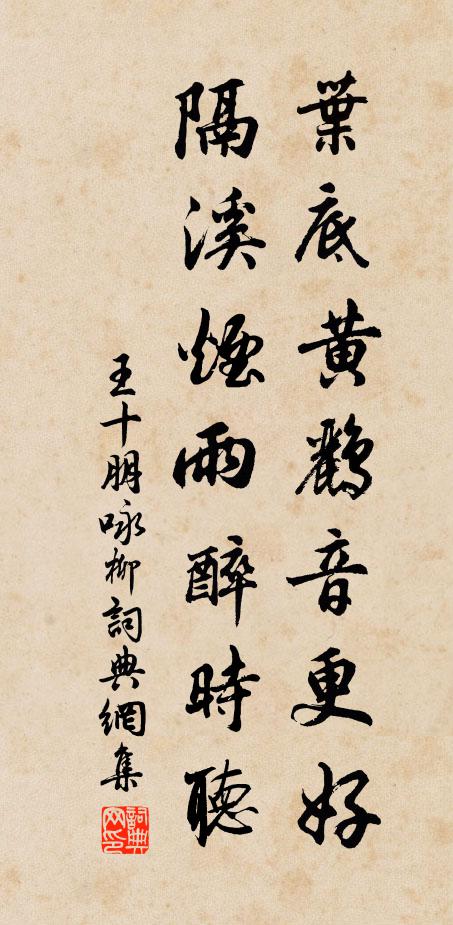 葉底黄鸝音更好
隔溪煙雨醉時聽
王十朋咏柳詞典網集
詞典網印